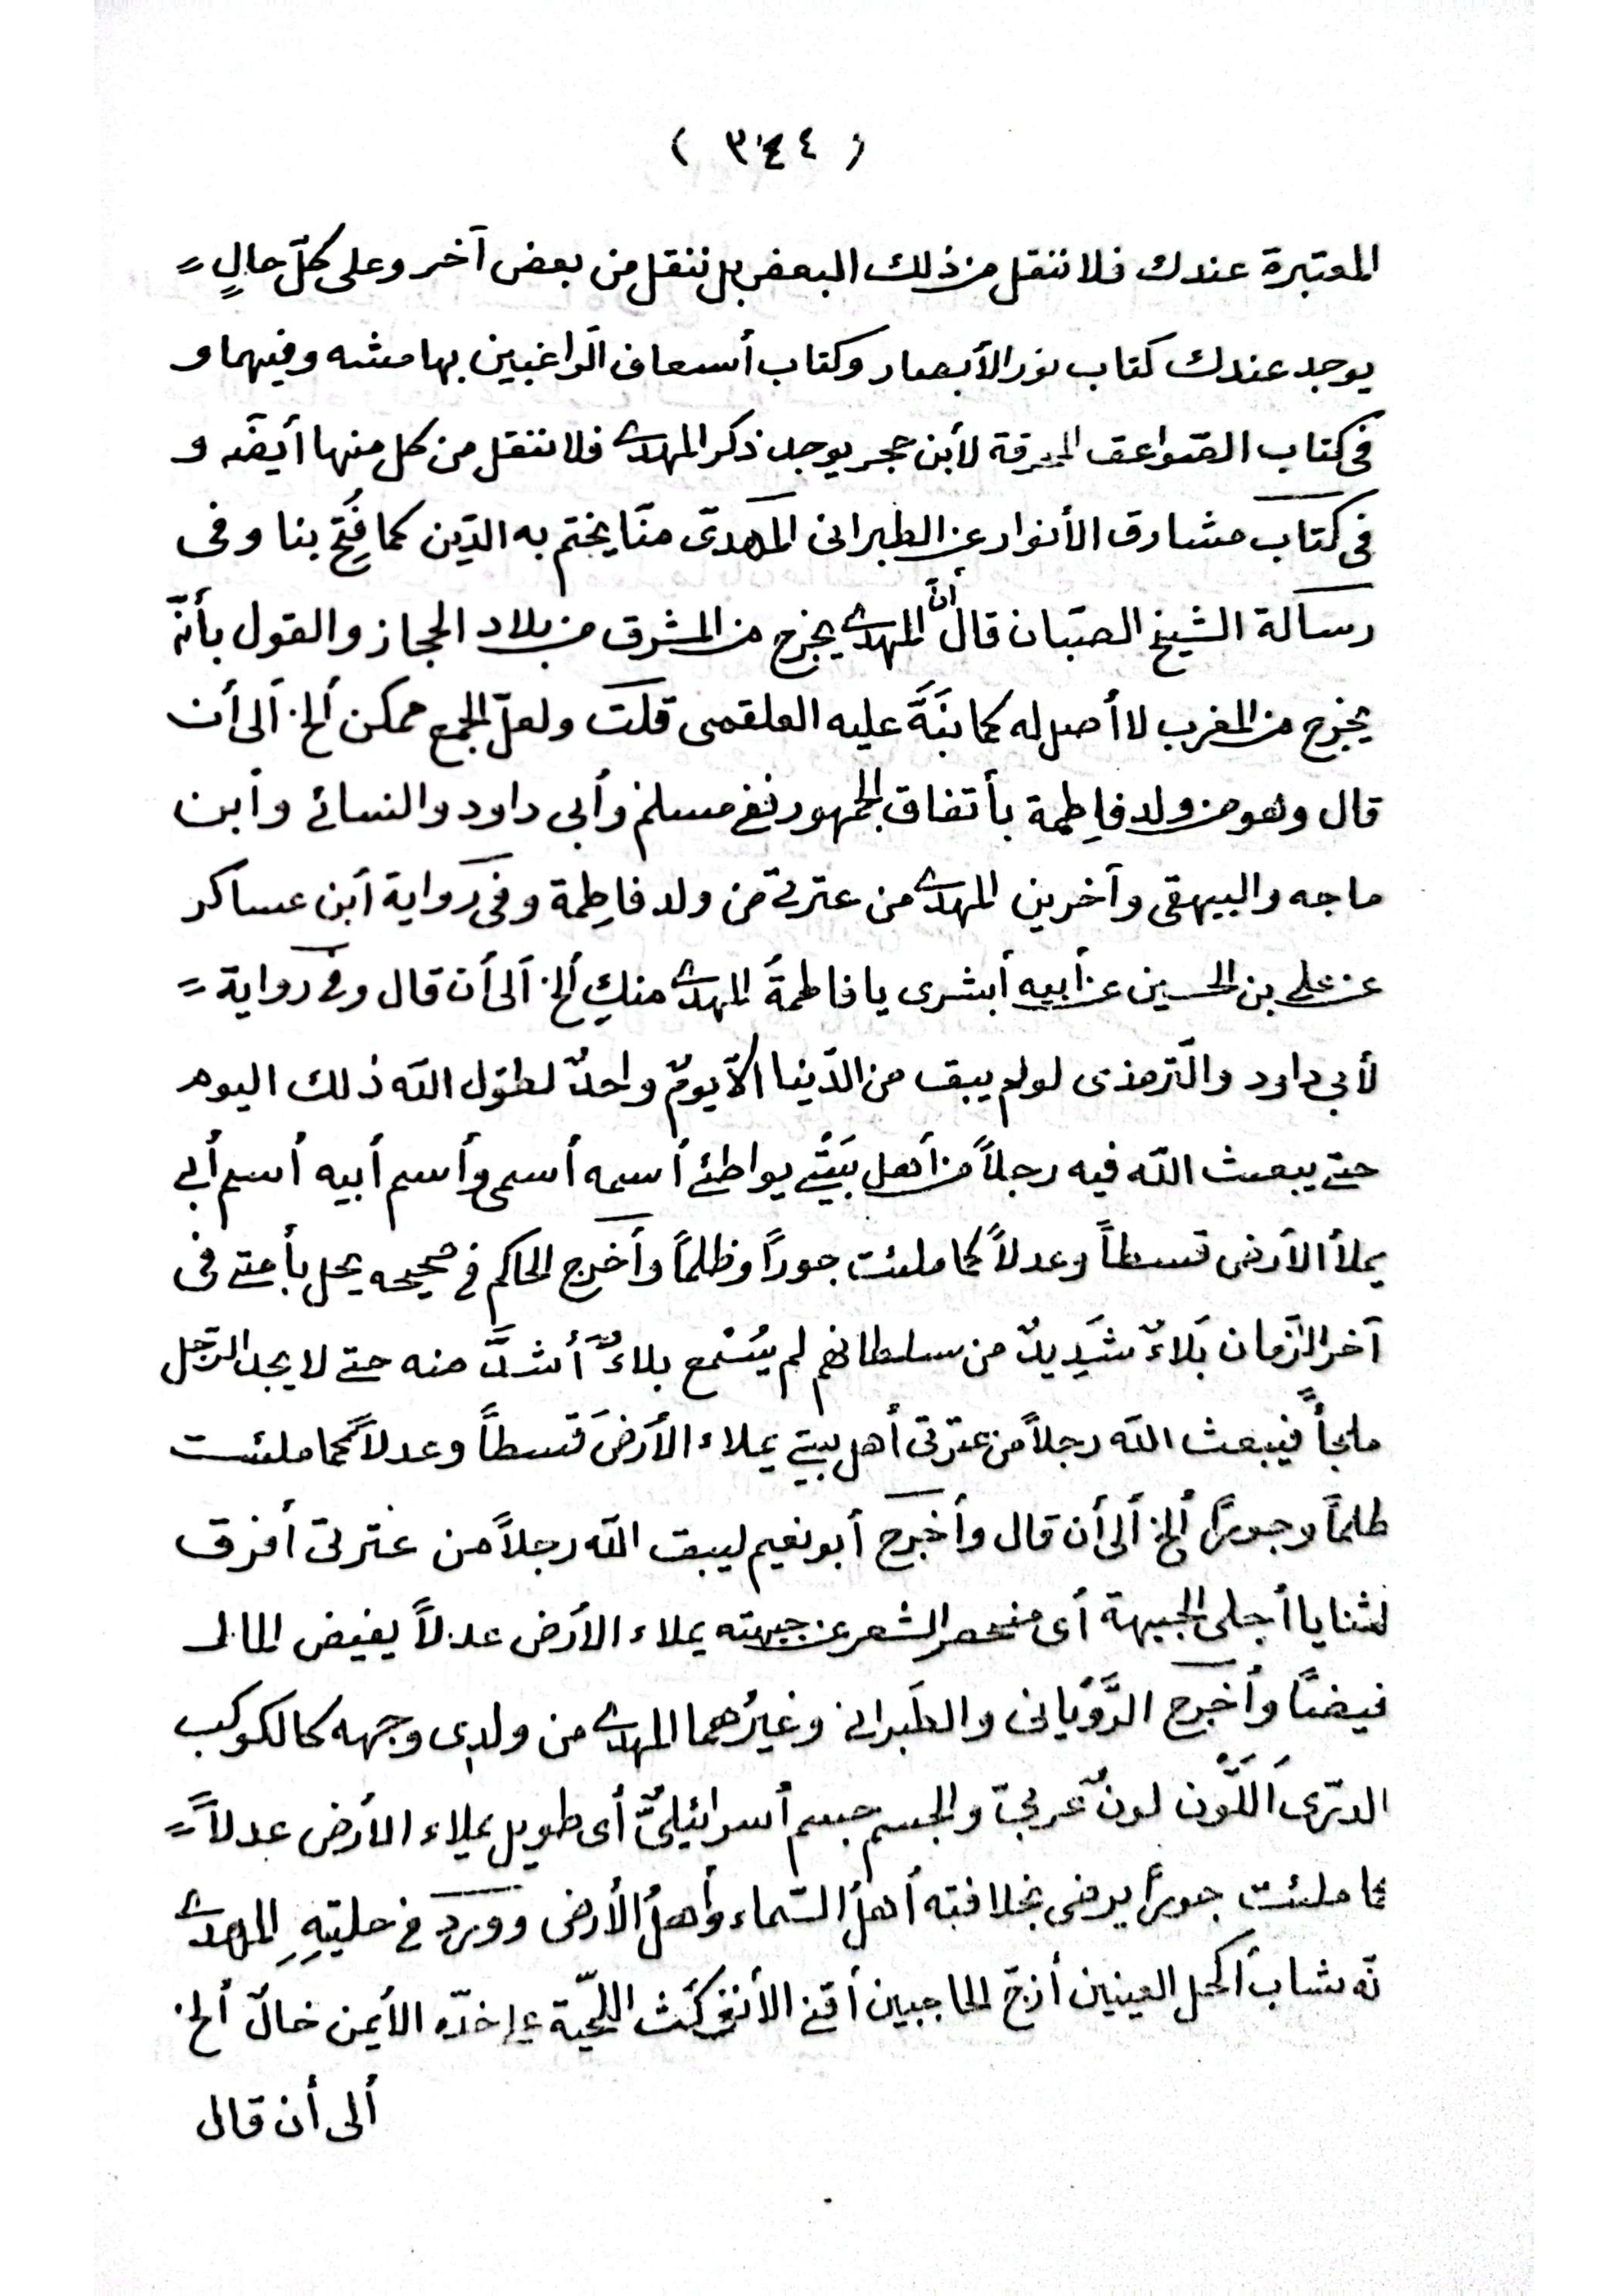 ( ٣٤٤ )
المعتبرة عندك فلا ننقل من ذلك البعض بل ننقل من بعض آخر وعلى كلّ حالٍ =
يوجد عندك كتاب نور الأبصار وكتاب أسعاف الرّاغبين بهامشه وفيهما و
فى كتاب الصّواعق المحرقة لأبن حجر يوجد ذكر المهدى فلا ننقل من كل منها أيضَه و
فى كتاب مشارق الأنوار عن الطبرانى المهدىّ منّا يختم به الدّين كما فُتِحَ بنا وفى
رسالة الشيخ الصّبان قال أنّ المهدى يخرج من المشرق من بلاد الحجاز والقول بأنّه
يخرج من المغرب لا أصل له كما نبَّهَ عليه العلقمى قلت ولعلّ الجمع ممكن ألخ ألى أن
قال وهو من ولد فاطمة بأتفاق الجمهور ففى مسلم وأبى داود والنسائى وأبن
ماجه والبيهقى وآخرين المهدى من عترتى من ولد فاطِمة وفى رواية أبن عساكر
عن على بن الحسين عن أبيه أبشرى يا فاطمةُ المهدى منكِ ألخ ألى أن قال وفى رواية =
لأبى داود والتّرمذى لولم يبق من الدّنيا الاّ يومٌ واحدٌ لطوّل الله ذلك اليوم
حتى يبعث الله فيه رجلاً من أهل بَيْتى يواطئ أسمه أسمى وأسم أبيه أسم أبى
يملأ الأرض قسطاً وعدلاً كما ملئت جوراً وظلماً وأخرج الحاكم فى صحيحه يحل بأمتى فى
آخر الزّمان بَلاءٌ شَدِيدٌ من سلطانهم لم يُسْمع بلاءٌ أشدَّ منه حتى لا يجد الرّجل
ملجأً فيبعث الله رجلاً من عترتى أهل بيتى يملاء الأرضَ قسطاً وعدلاً كما ملئت
ظلماً وجوراً ألخ ألى أن قال وأخرج أبو نعيم ليبق الله رجلاً من عترتى أفرق
لثنايا أجلى الجبهة أى منحصر الشعر عن جبهته يملاء الأرض عدلاً يفيض المال
فيضاً وأخرج الرّؤيانى والطَبرانى وغيرُهما المهدى من ولدِى وجهه كالكوكب
الدرّى اَللَّون لونٌ عربىّ والجسم جسم أسرائيلىٌّ أى طويل يملاء الأرض عدلاً =
كما ملئت جوراً يرضى بخلافته أهلُ السّماء وأهلُ الأرض وورد فى حليتِهِ المهدى
نّه شاب أكحل العينين أزجّ الحاجبين أقنى الأنف كَثّ اللّحية على خدّه الأيمن خالٌ ألخ
ألى أن قال